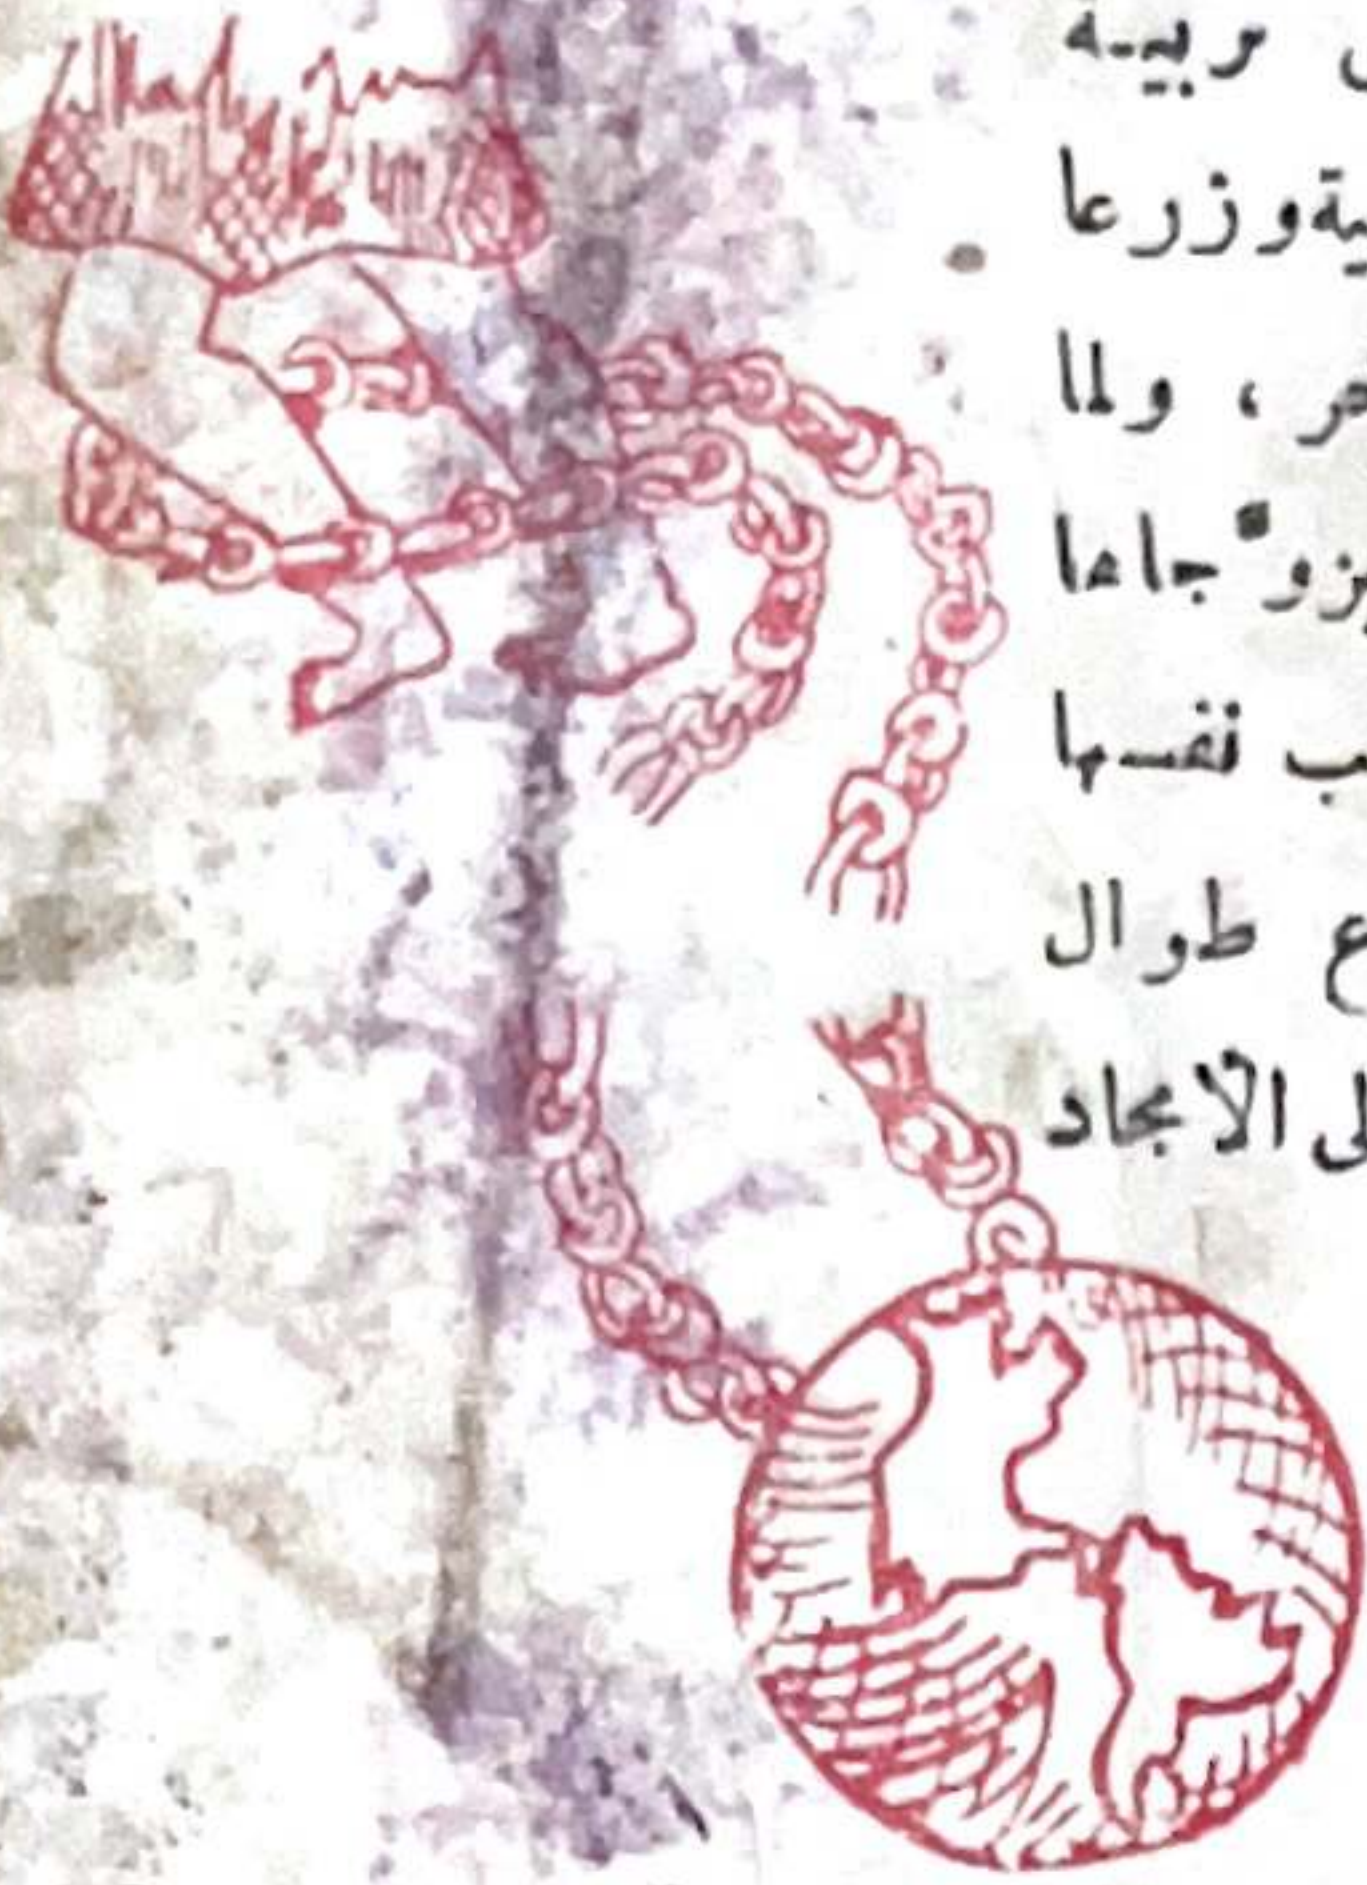 حربيـه
ية وزرعا
حر ، ولما
يزو جاءا
ب نفسـها
ع طوال
لى الأمجاد